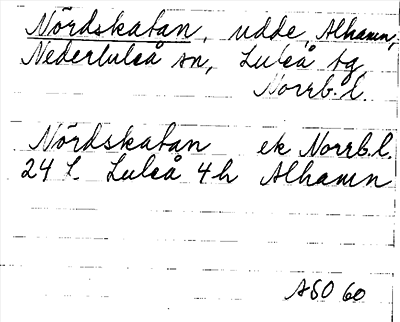 Nördskatan, udde, Alhamn,
Nederluleå sn, Luleå tg
Norrb. l.
Nördskatan ek Norrb. l.
24 L. Luleå 4h Alhamn
ASO 60